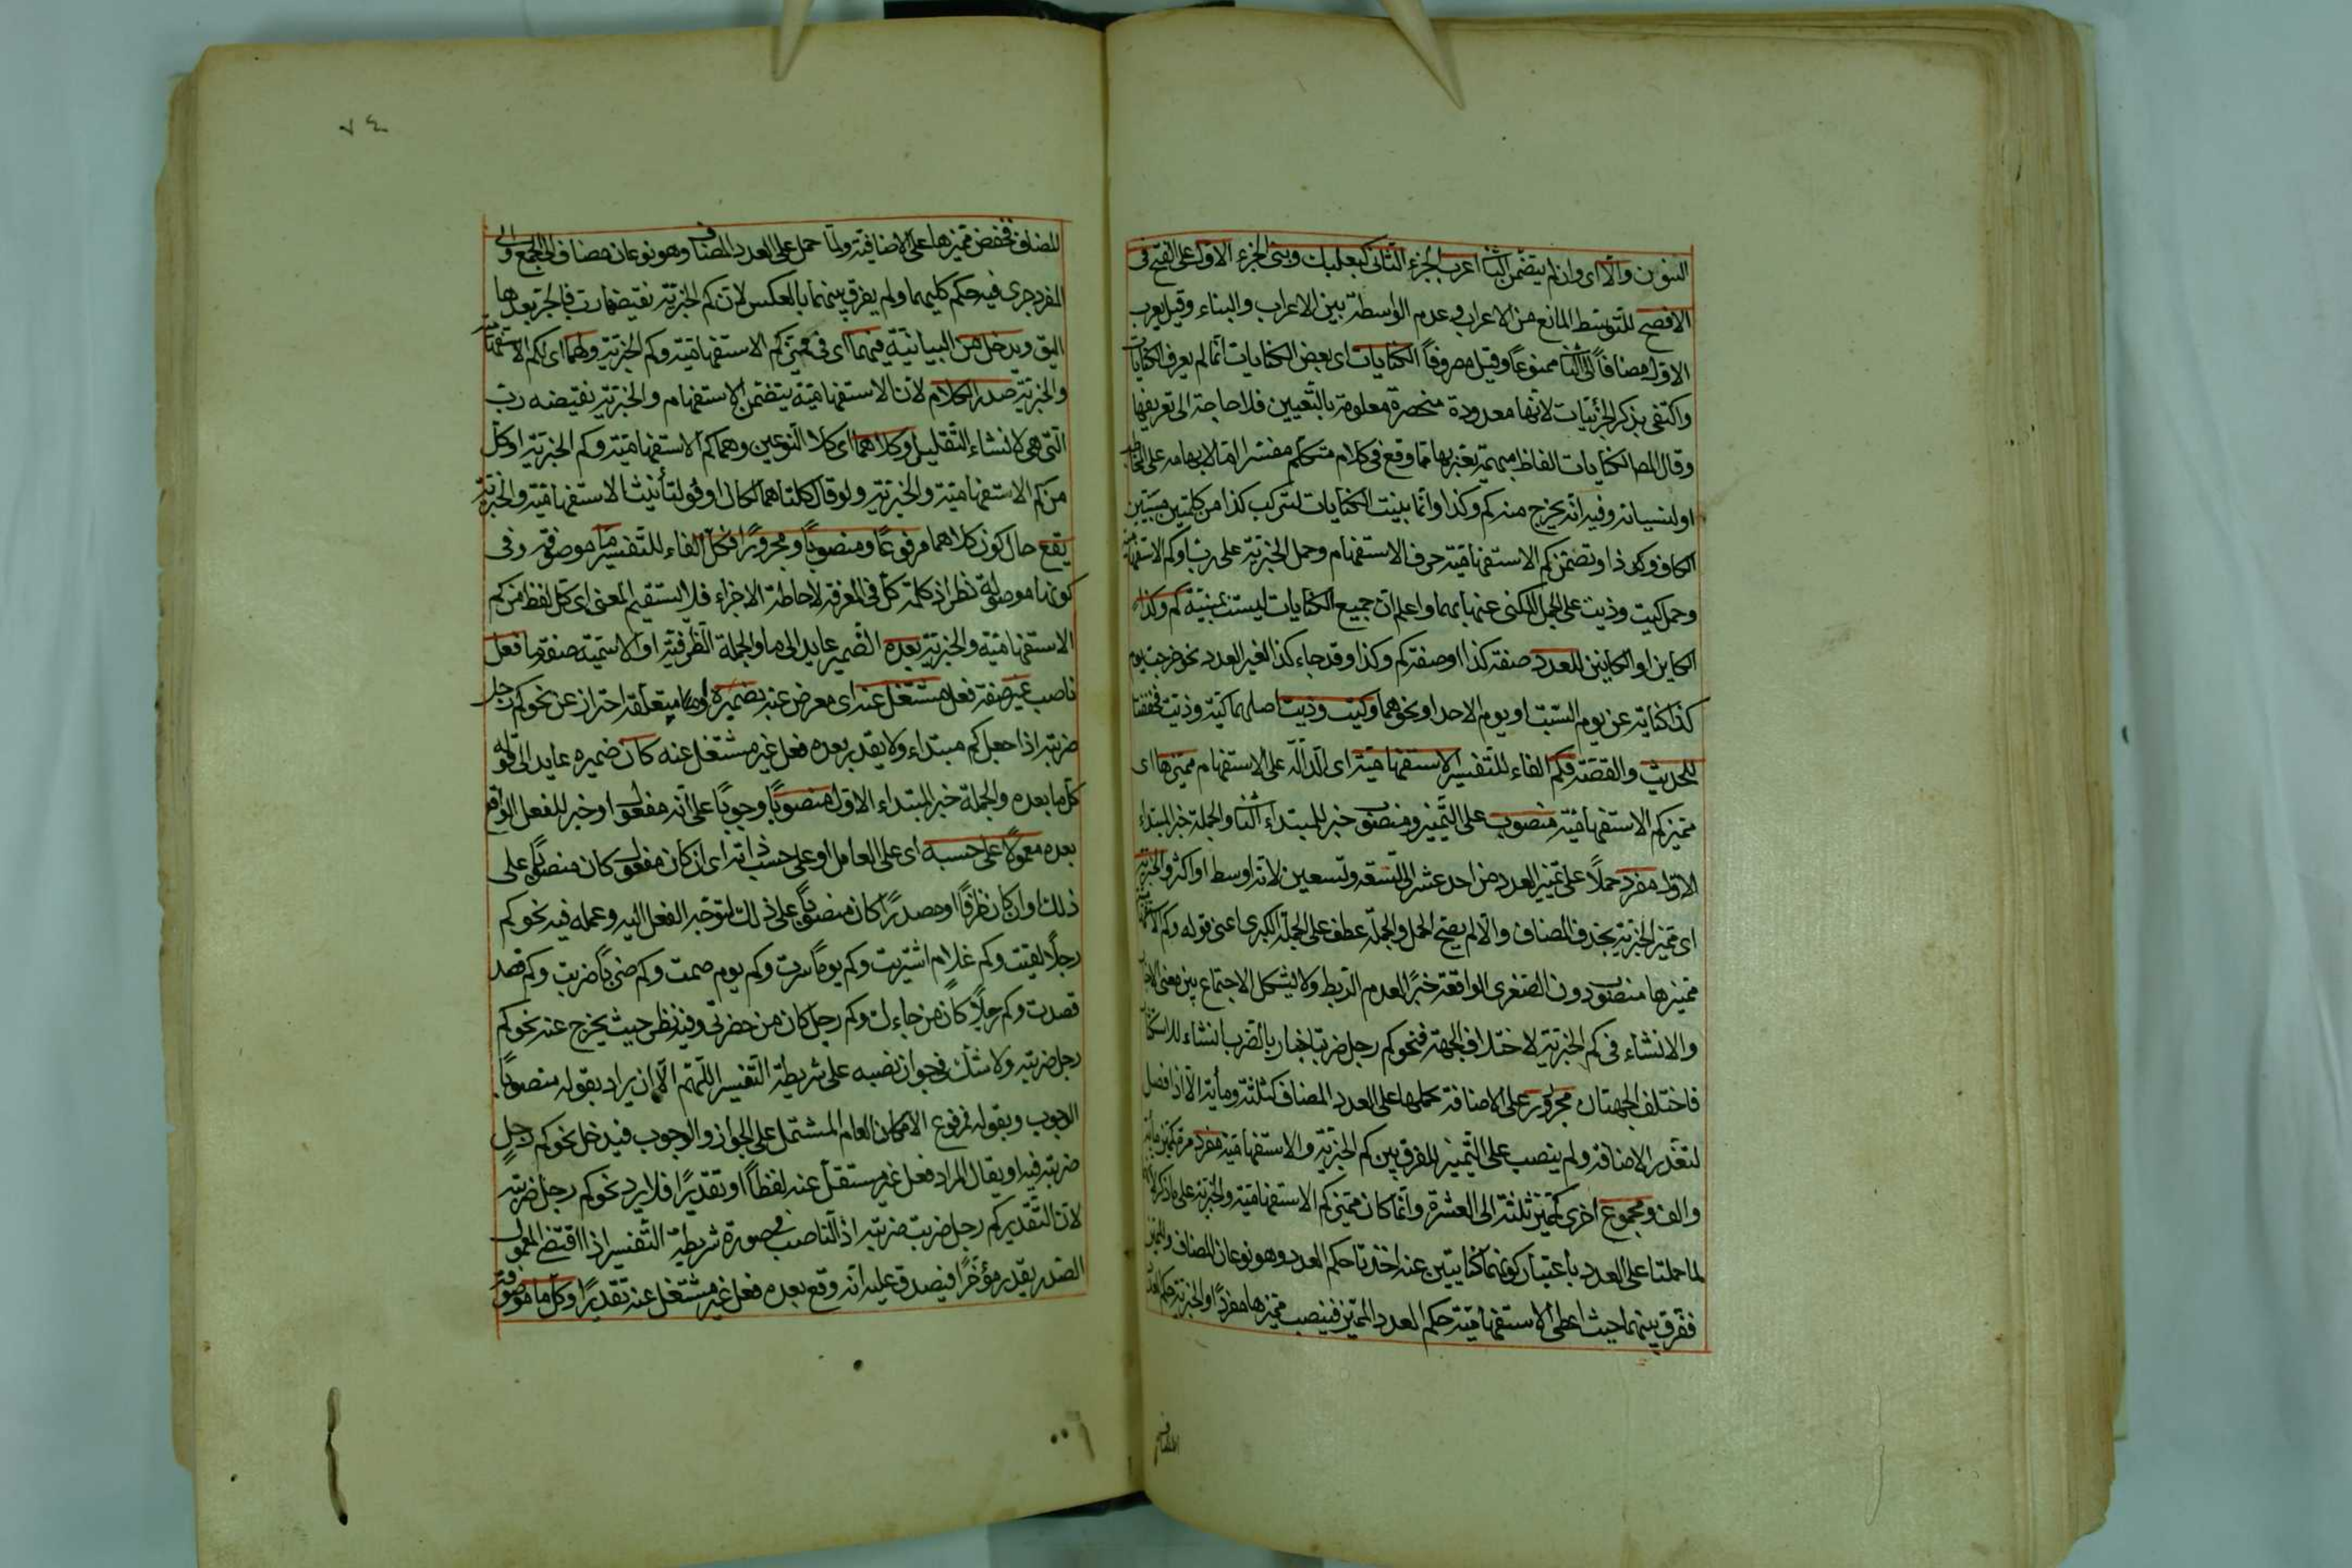 التنوين والا اى وان لم يتضمن الثانى اعرب الجزء الثانى كبعلبك وبنى الجزء الاول على الفتح فى
الافصح للتوسط المانع من الاعراب وعدم الواسطة بين الاعراب والبناء وقيل يعرب
الاول مضافا الى الثانى ممنوعا وقيل مصروفا الكنايات اى بعض الكنايات انما لم يعرف الكنايات
واكتفى بذكر الجزئيات لانها معدودة منحصرة معلومة بالتعيين فلا حاجة الى تعريفها
وقال المص الكنايات الفاظ مبهمة يعبر بها عما وقع فى كلام متكلم مفسرا اما لابهامه على المخاطب
او لنسيانه وفيه انه يخرج منه كم وكذا وانما بنيت الكنايات لتركب كذا من كلمتين مبنيتين
الكاف وكذا وتضمن كم الاستفهامية حرف الاستفهام وحمل الخبرية على رب او كم الاستفهامية
وحمل كيت وذيت على الجمل المكنى عنها بهما واعلم ان جميع الكنايات ليست بمبنية كم وكذا
الكاين او الكاينين للعدد صفة كذا او صفة كم وكذا وقد جاء كذا لغير العدد نحو خرجت يوم
كذا كناية عن يوم السبت او يوم الاحد او نحوهما وكيت وذيت اصلهما كية وذية فخففتا
للحديث والقصة فكم الفاء للتفسير الاستفهامية اى الدالة على الاستفهام مميزها اى
مميز كم الاستفهامية منصوب على التمييز ومنصوب خبر للمبتداء الثانى والجملة خبر المبتداء
الاول مفرد حملا على مميز العدد من احد عشر الى تسعة وتسعين لانه اوسط او اكثر والخبرية
اى مميز الخبرية بحذف المضاف والا لم يصح الحمل والجملة عطف على الجملة الكبرى اعنى قوله وكم الاستفهامية
مميزها منصوب دون الصغرى الواقعة خبرا لعدم الربط ولا يشكل الاجتماع بين معنى الاخبار
والانشاء فى كم الخبرية لاختلاف الجهة فنحو كم رجل ضربت اخبار بالضرب انشاء للاستكثار
فاختلف الجهتان مجرور على الاضافة بحملها على العدد المضاف كثلثة ومأية الا اذا فصل
لتعذر الاضافة ولم ينصب على التمييز للفرق بين كم الخبرية والاستفهامية مفرد مرة كمميز مأية
والف ومجموع اخرى كمميز ثلثة الى العشرة وانما كان مميز كم الاستفهامية والخبرية على ما ذكر لانه
لما حملتا على العدد باعتبار كونهما كنايتين عنه اخذتا حكم العدد وهو نوعان المضاف والمميز
ففرق بينهما حيث اعطى الاستفهامية حكم العدد المميز فينصب مميزها مفردا والخبرية حكم العدد
المضاف
٧٤
المضاف فخفض مميزها على الاضافية ولما حمل على العدد المضاف وهو نوعان مضاف الى الجمع والى
المفرد جرى فيه حكم كليهما ولم يفرق بينهما بالعكس لان كم الخبرية نقيضة رب فالجر بعدها
اليق ويدخل من البيانية فيهما اى فى مميز كم الاستفهامية وكم الخبرية ولهما اى لكم الاستفهامية
والخبرية صدر الكلام لان الاستفهامية يتضمن الاستفهام والخبرية نقيضه رب
التى هى لانشاء التقليل وكلاهما اى كلا النوعين وهما كم الاستفهامية وكم الخبرية او كل
من كم الاستفهامية والخبرية ولو قال كلتاهما لكان اوفق لتأنيث الاستفهامية والخبرية
يقع حال كون كلاهما مرفوعا ومنصوبا ومجرورا فكل الفاء للتفسير ما موصوفة وفى
كونها موصولة نظر اذ كلمة كل فى المعرفة لاحاطة الاجزاء فلا يستقيم المعنى اى كل لفظ من كم
الاستفهامية والخبرية بعده الضمير عايد الى ما والجملة الظرفية او الاسمية صفة ما فعل
ناصب غير صفة فعل مشتغل عنه اى معرض عنه بضميره او متعلقه احتراز عن نحو كم رجل
ضربته اذا جعل كم مبتداء ولا يقدر بعده فعل غير مشتغل عنه كان ضميره عايد الى قوله
كل ما بعده والجملة خبر المبتداء الاول منصوبا وجوبا على انه مفعول او خبر للفعل الواقع
بعده معمولا على حسبه اى على العامل او على حسب ذاته اى ان كان مفعولا كان منصوبا على
ذلك او ان كان ظرفا او مصدرا كان منصوبا على ذلك لتوجه الفعل اليه وعمله فيه نحو كم
رجلا لقيت وكم غلام اشتريت وكم يوما سرت وكم يوم صمت وكم ضربا ضربت وكم قصد
قصدت وكم رجلا كان من جاءك وكم رجل كان من حضرتى وفيه نظر حيث يخرج عنه نحو كم
رجل ضربته ولا شك فى جواز نصبه على شريطة التفسير اللهم الا ان يراد بقوله منصوبا
الوجوب وبقوله مرفوع الامكان العام المشتمل على الجواز والوجوب فيدخل نحو كم رجل
ضربته فيه او يقال المراد فعل غير مستقل عنه لفظا او تقديرا فلا يرد نحو كم رجل ضربته
لان التقدير كم رجل ضربت ضربته اذ الناصب فى صورة شريطة التفسير اذا اقتضى المعمول
الصدر يقدر مؤخرا فيصدق عليه انه وقع بعده فعل غير مشتغل عنه تقديرا وكل ما موصوفة